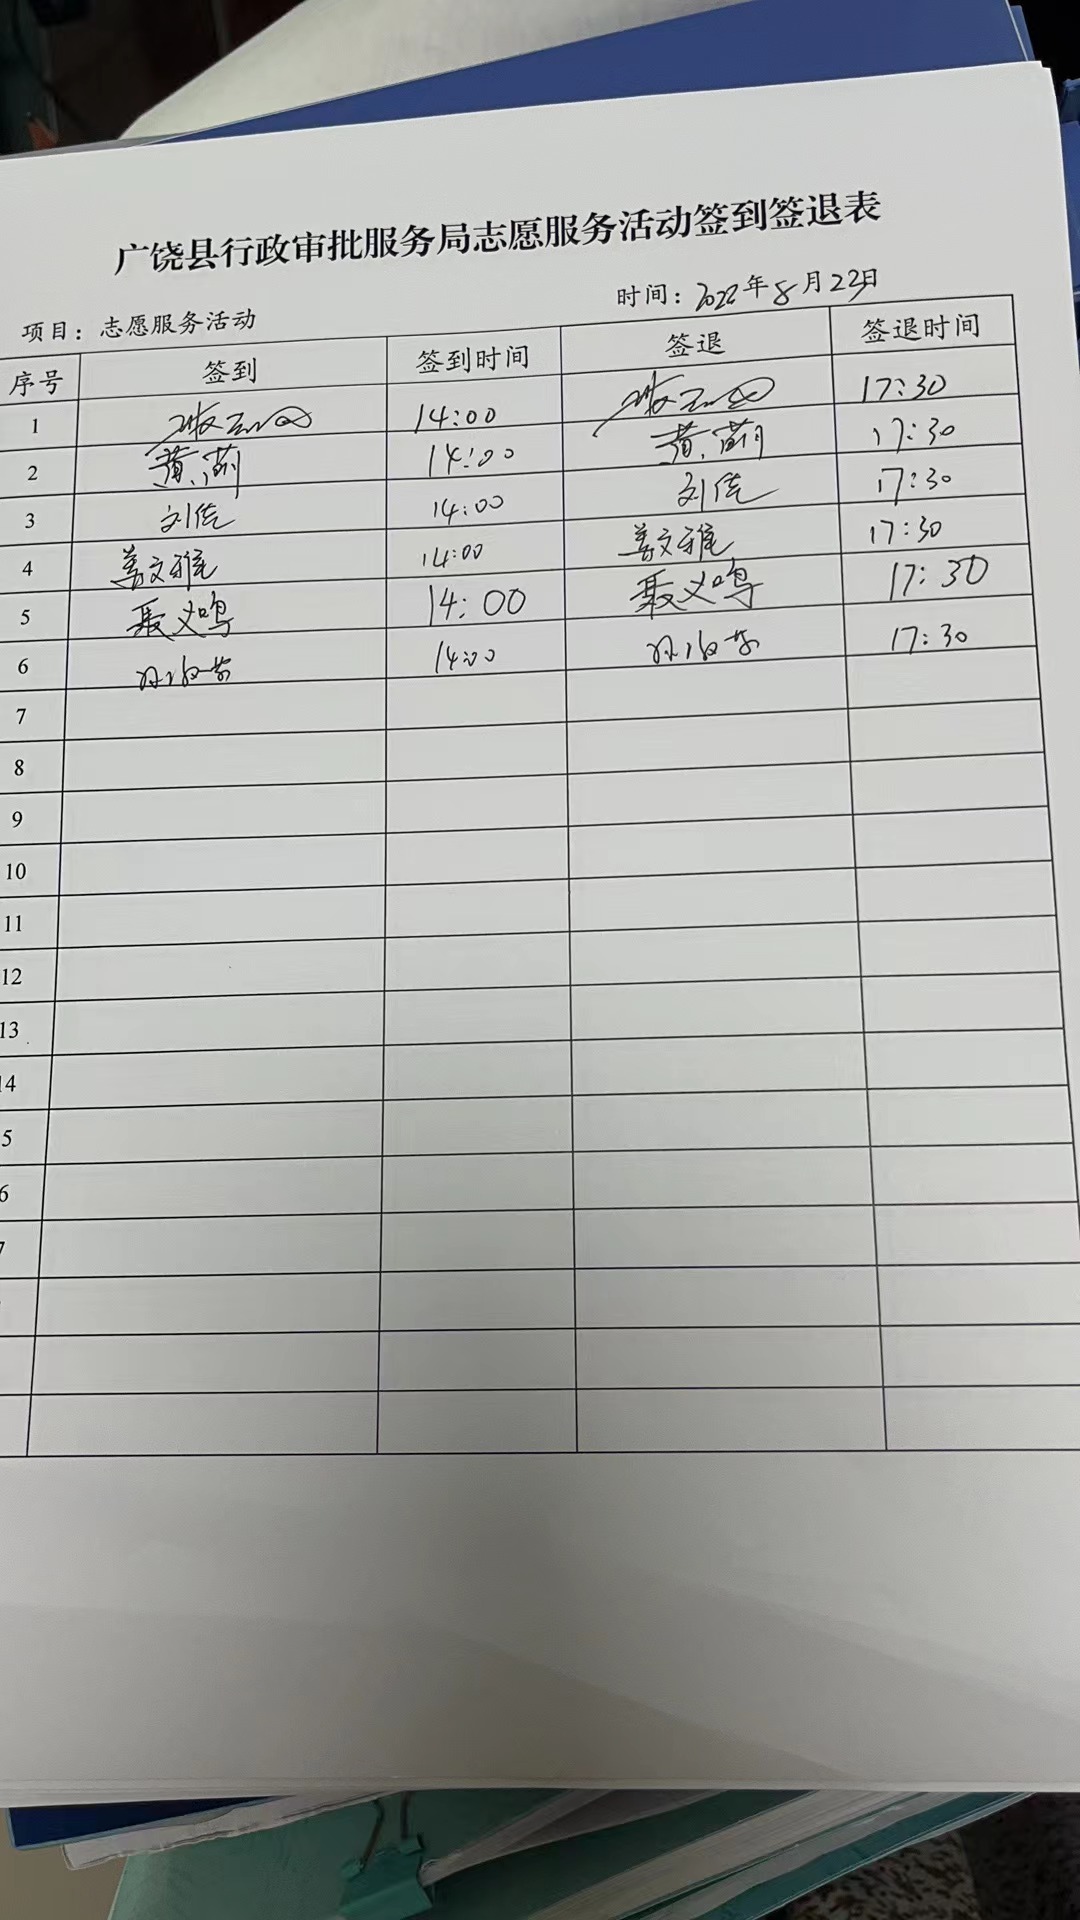 广饶县行政审批服务局志愿服务活动签到签退表
项目：志愿服务活动 时间：2022年8月23日
序号 签到 签到时间 签退 签退时间
1 14:00 17:30
2 黄 14:00 黄 17:30
3 刘佳 14:00 刘佳 17:30
4 姜文雅 14:00 姜文雅 17:30
5 聂义鸣 14:00 聂义鸣 17:30
6 14:00 17:30
7
8
9
10
11
12
13
14
5
6
7